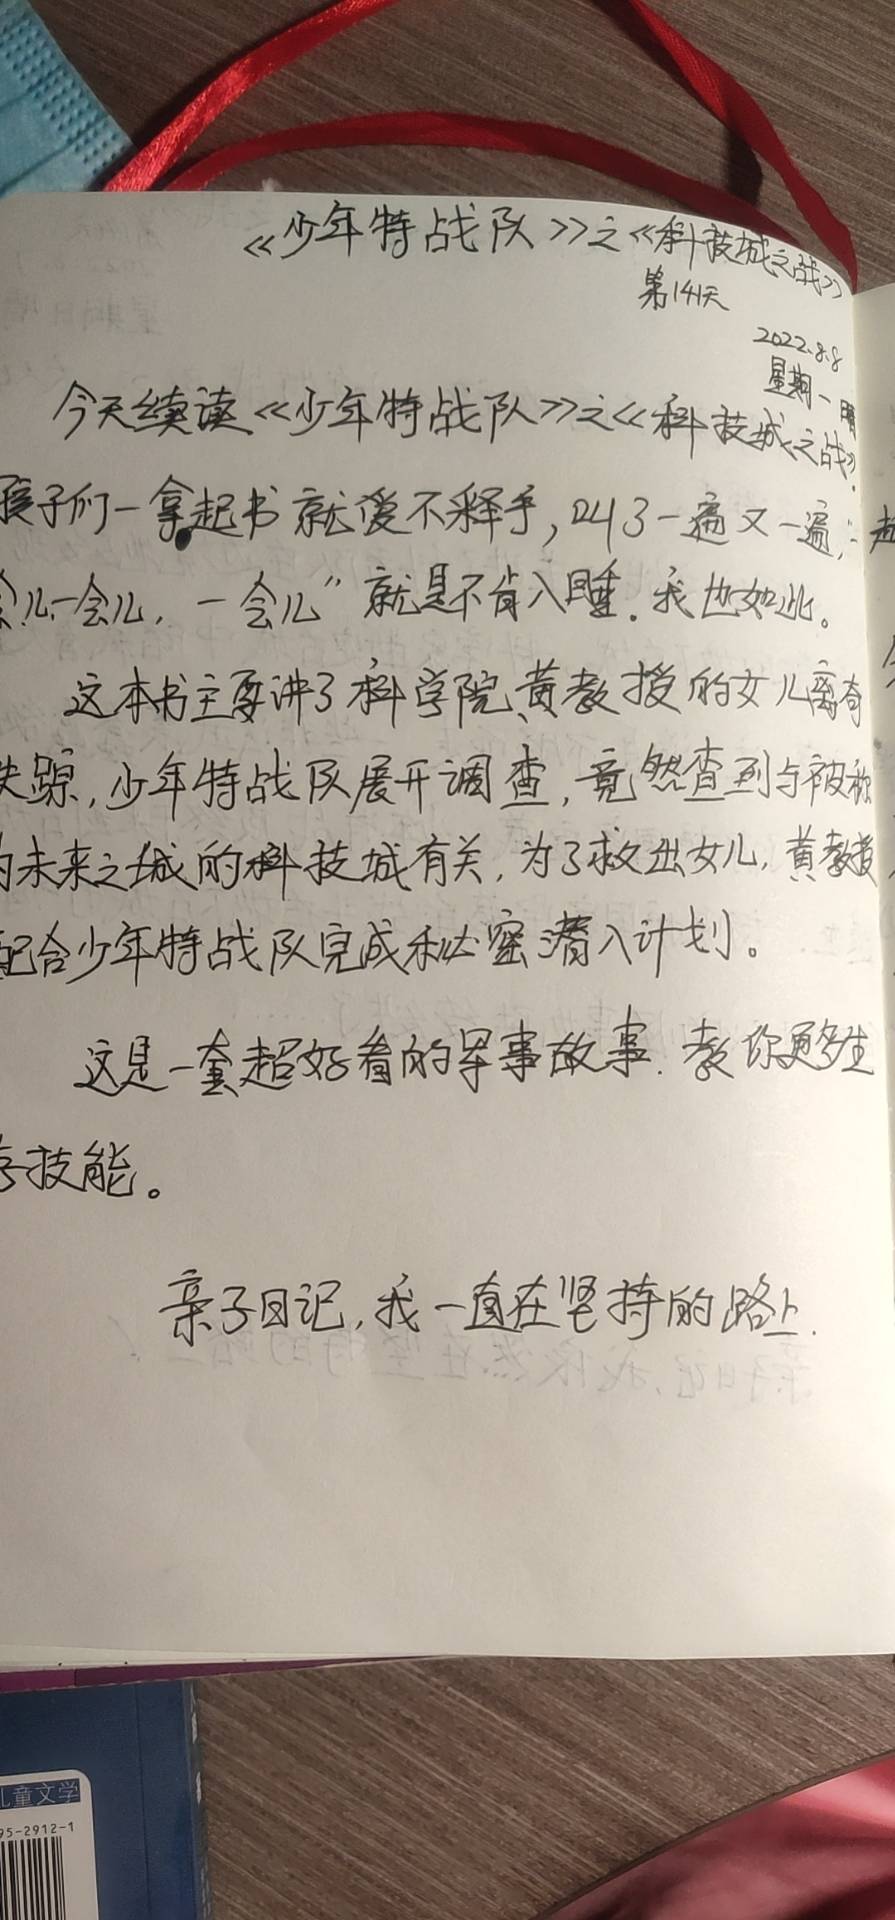 《少年特战队》之《科技城之战》
第141天
2022.8.8
星期一 晴
今天续读《少年特战队》之《科技城之战》.
孩子们一拿起书就爱不释手,叫了一遍又一遍,"一
会儿一会儿,一会儿"就是不肯入睡.我也如此。
这本书主要讲了科学院黄教授的女儿离奇
失踪,少年特战队展开调查,竟然查到与被称
为未来之城的科技城有关,为了救出女儿,黄教授
配合少年特战队完成秘密潜入计划。
这是一套超好看的军事故事.教你更多生
存技能。
亲子日记,我一直在坚持的路上.
儿童文学
95-2912-1